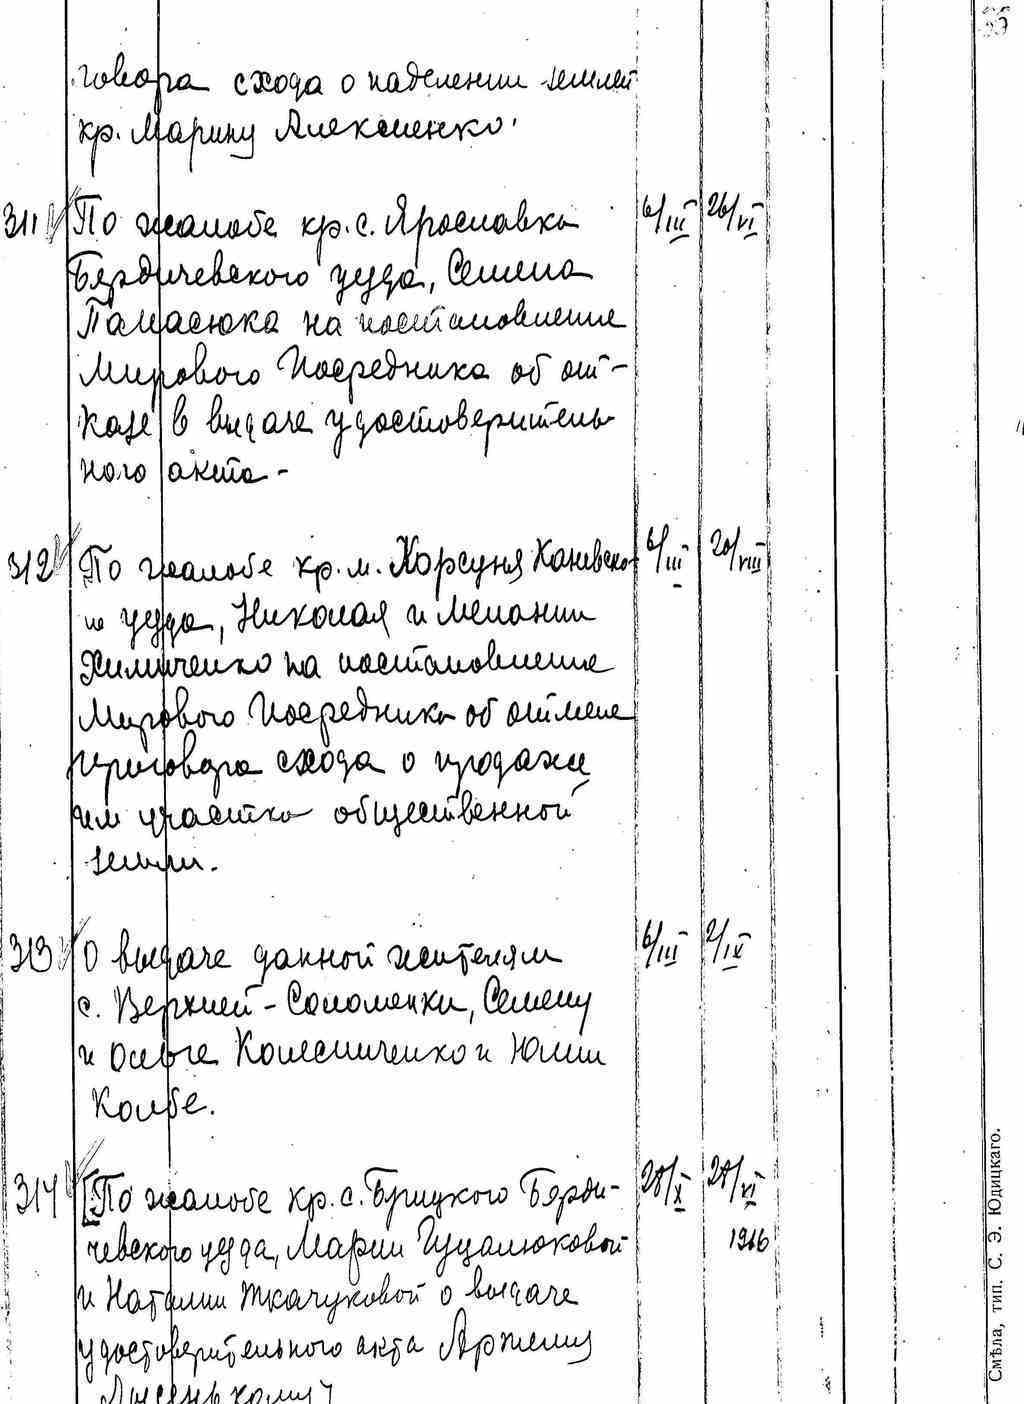 говора схода о наделении землей
кр. Марину Алексиенко.
311 По жалобе кр. с. Ярославка 6/III 26/VI
Бердичевского уезда, Семена
Панасюка на постановление
Мирового Посредника об от-
казе в выдаче удостоверитель-
ного акта -
312 По жалобе кр. м. Корсуня Каневско- 6/III 20/VIII
го уезда, Николая и Мелании
Химиченко на постановление
Мирового Посредника об отмене
приговора схода о продаже
им участка общественной
земли.
313 О выдаче данной жителям 6/III 2/IX
с. Верхней-Соломенки, Семену
и Ольге Колесниченко и Юлии
Колбе.
314 По жалобе кр. с. Брицкого Берди- 28/X 28/VI
чевского уезда, Марии Гуцалюковой 1916
и Наталии Ткачуковой о выдаче
удостоверительного акта
Смѣла, тип. С. Э. Юдицкаго.